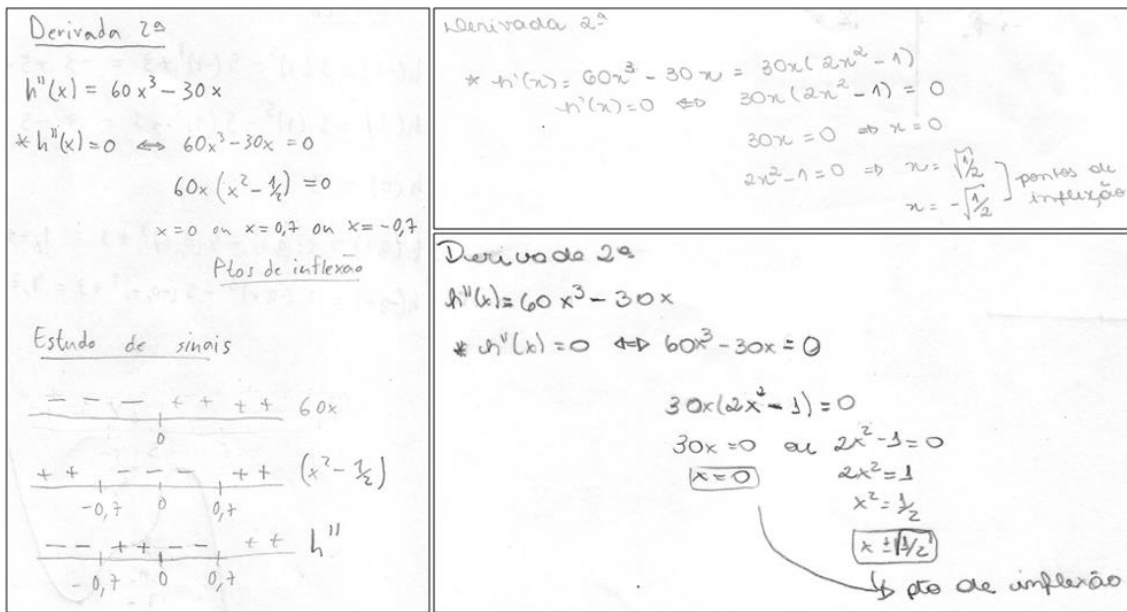 Derivada 2ª
h''(x) = 60x³ - 30x
* h''(x) = 0 ⇔ 60x³ - 30x = 0
60x(x² - 1/2) = 0
x = 0 ou x = 0,7 ou x = -0,7
Ptos de inflexão
Estudo de sinais
- - - + + + + 60x
0
+ + - - - + + (x² - 1/2)
-0,7 0 0,7
- - + + - - + + h''
-0,7 0 0,7
Derivada 2ª
* h'(x) = 60x³ - 30x = 30x(2x² - 1)
h'(x) = 0 ⇔ 30x(2x² - 1) = 0
30x = 0 ⇒ x = 0
2x² - 1 = 0 ⇒ x = √1/2
x = -√1/2
pontos de
inflexão
Derivada 2ª
h''(x) = 60x³ - 30x
* h''(x) = 0 ⇔ 60x³ - 30x = 0
30x(2x² - 1) = 0
30x = 0 ou 2x² - 1 = 0
x = 0 2x² = 1
x² = 1/2
x ± √1/2
↳ pto de inflexão